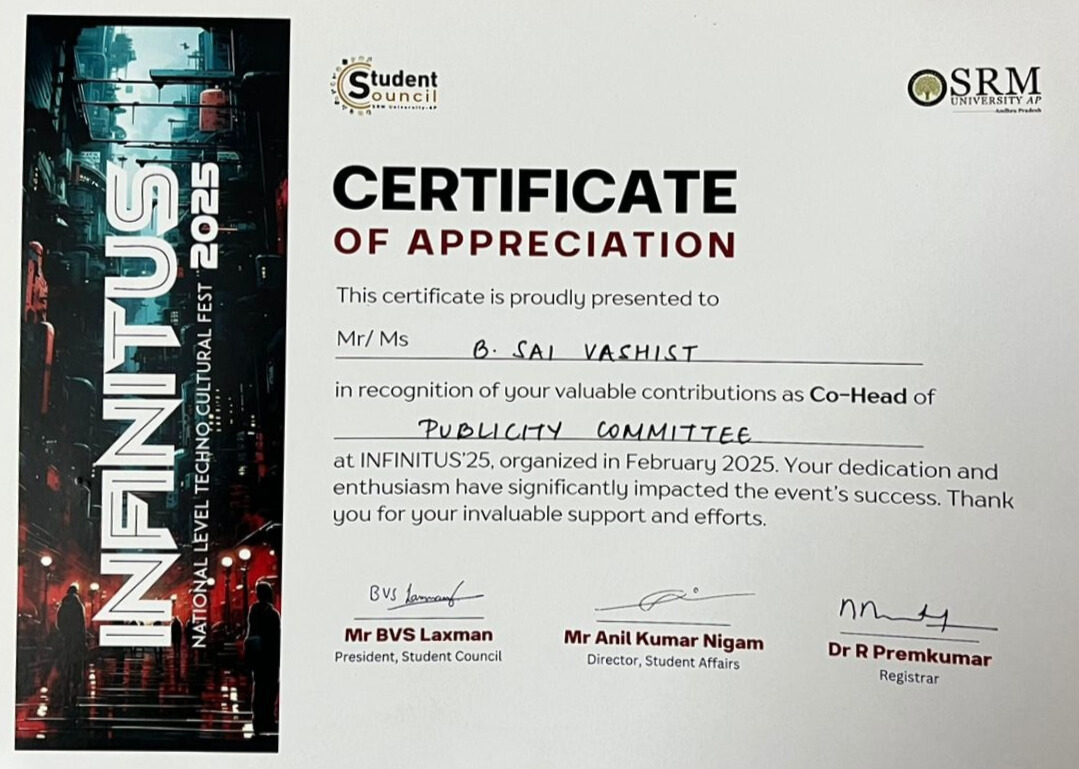 INFINITUS 2025
NATIONAL LEVEL TECHNO CULTURAL FEST
Student
Council
SRM University-AP
SRM
UNIVERSITY AP
Andhra Pradesh
CERTIFICATE
OF APPRECIATION
This certificate is proudly presented to
Mr/ Ms B. SAI VASHIST
in recognition of your valuable contributions as Co-Head of
PUBLICITY COMMITTEE
at INFINITUS'25, organized in February 2025. Your dedication and
enthusiasm have significantly impacted the event's success. Thank
you for your invaluable support and efforts.
BVS Laxman
Mr BVS Laxman
President, Student Council
Mr Anil Kumar Nigam
Director, Student Affairs
Dr R Premkumar
Registrar